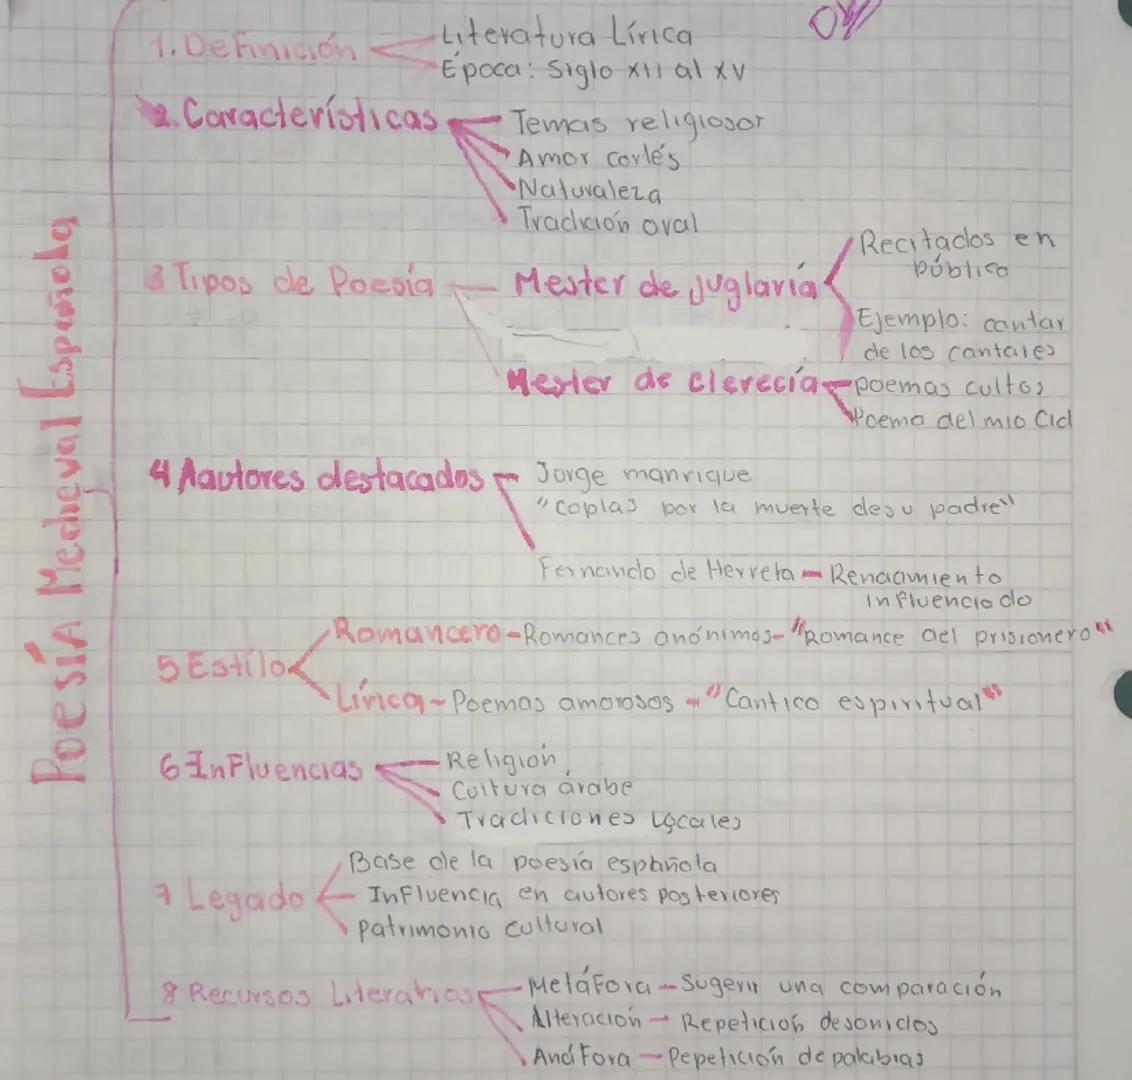 Poesía Medieval Española
1. Definición
Literatura Lírica
Época: Siglo XII al XV
2. Características
Temas religiosor
Amor cortés
Naturaleza
Tradición oral
3 Tipos de Poesía
Mester de juglaría
Recitados en
público
Ejemplo: cantar
de los cantares
Mester de clerecía
poemas cultos
Poema del mio Cid
4 Aautores destacados
Jorge manrique
"Coplas por la muerte de su padre"
Fernando de Herrera - Renacimiento
influenciado
5 Estilo
Romancero - Romances anónimos - "Romance del prisionero"
Lírica - Poemas amorosos - "Cantico espiritual"
6 Influencias
Religión
Cultura árabe
Tradiciones Locales
7 Legado
Base de la poesía española
Influencia en autores posteriores
patrimonio cultural
8 Recursos Literarias
Metáfora - Sugerir una comparación
Alteración → Repetición de sonidos
Anáfora - Pepetición de palabras